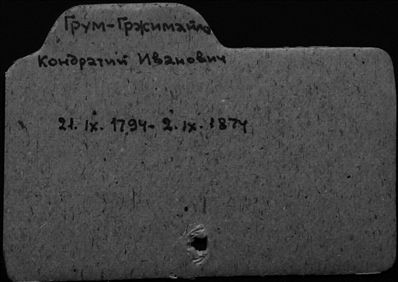 Грум-Гржимайло
Кондратий Иванович
21. IX. 1794 - 2. IX. 1874